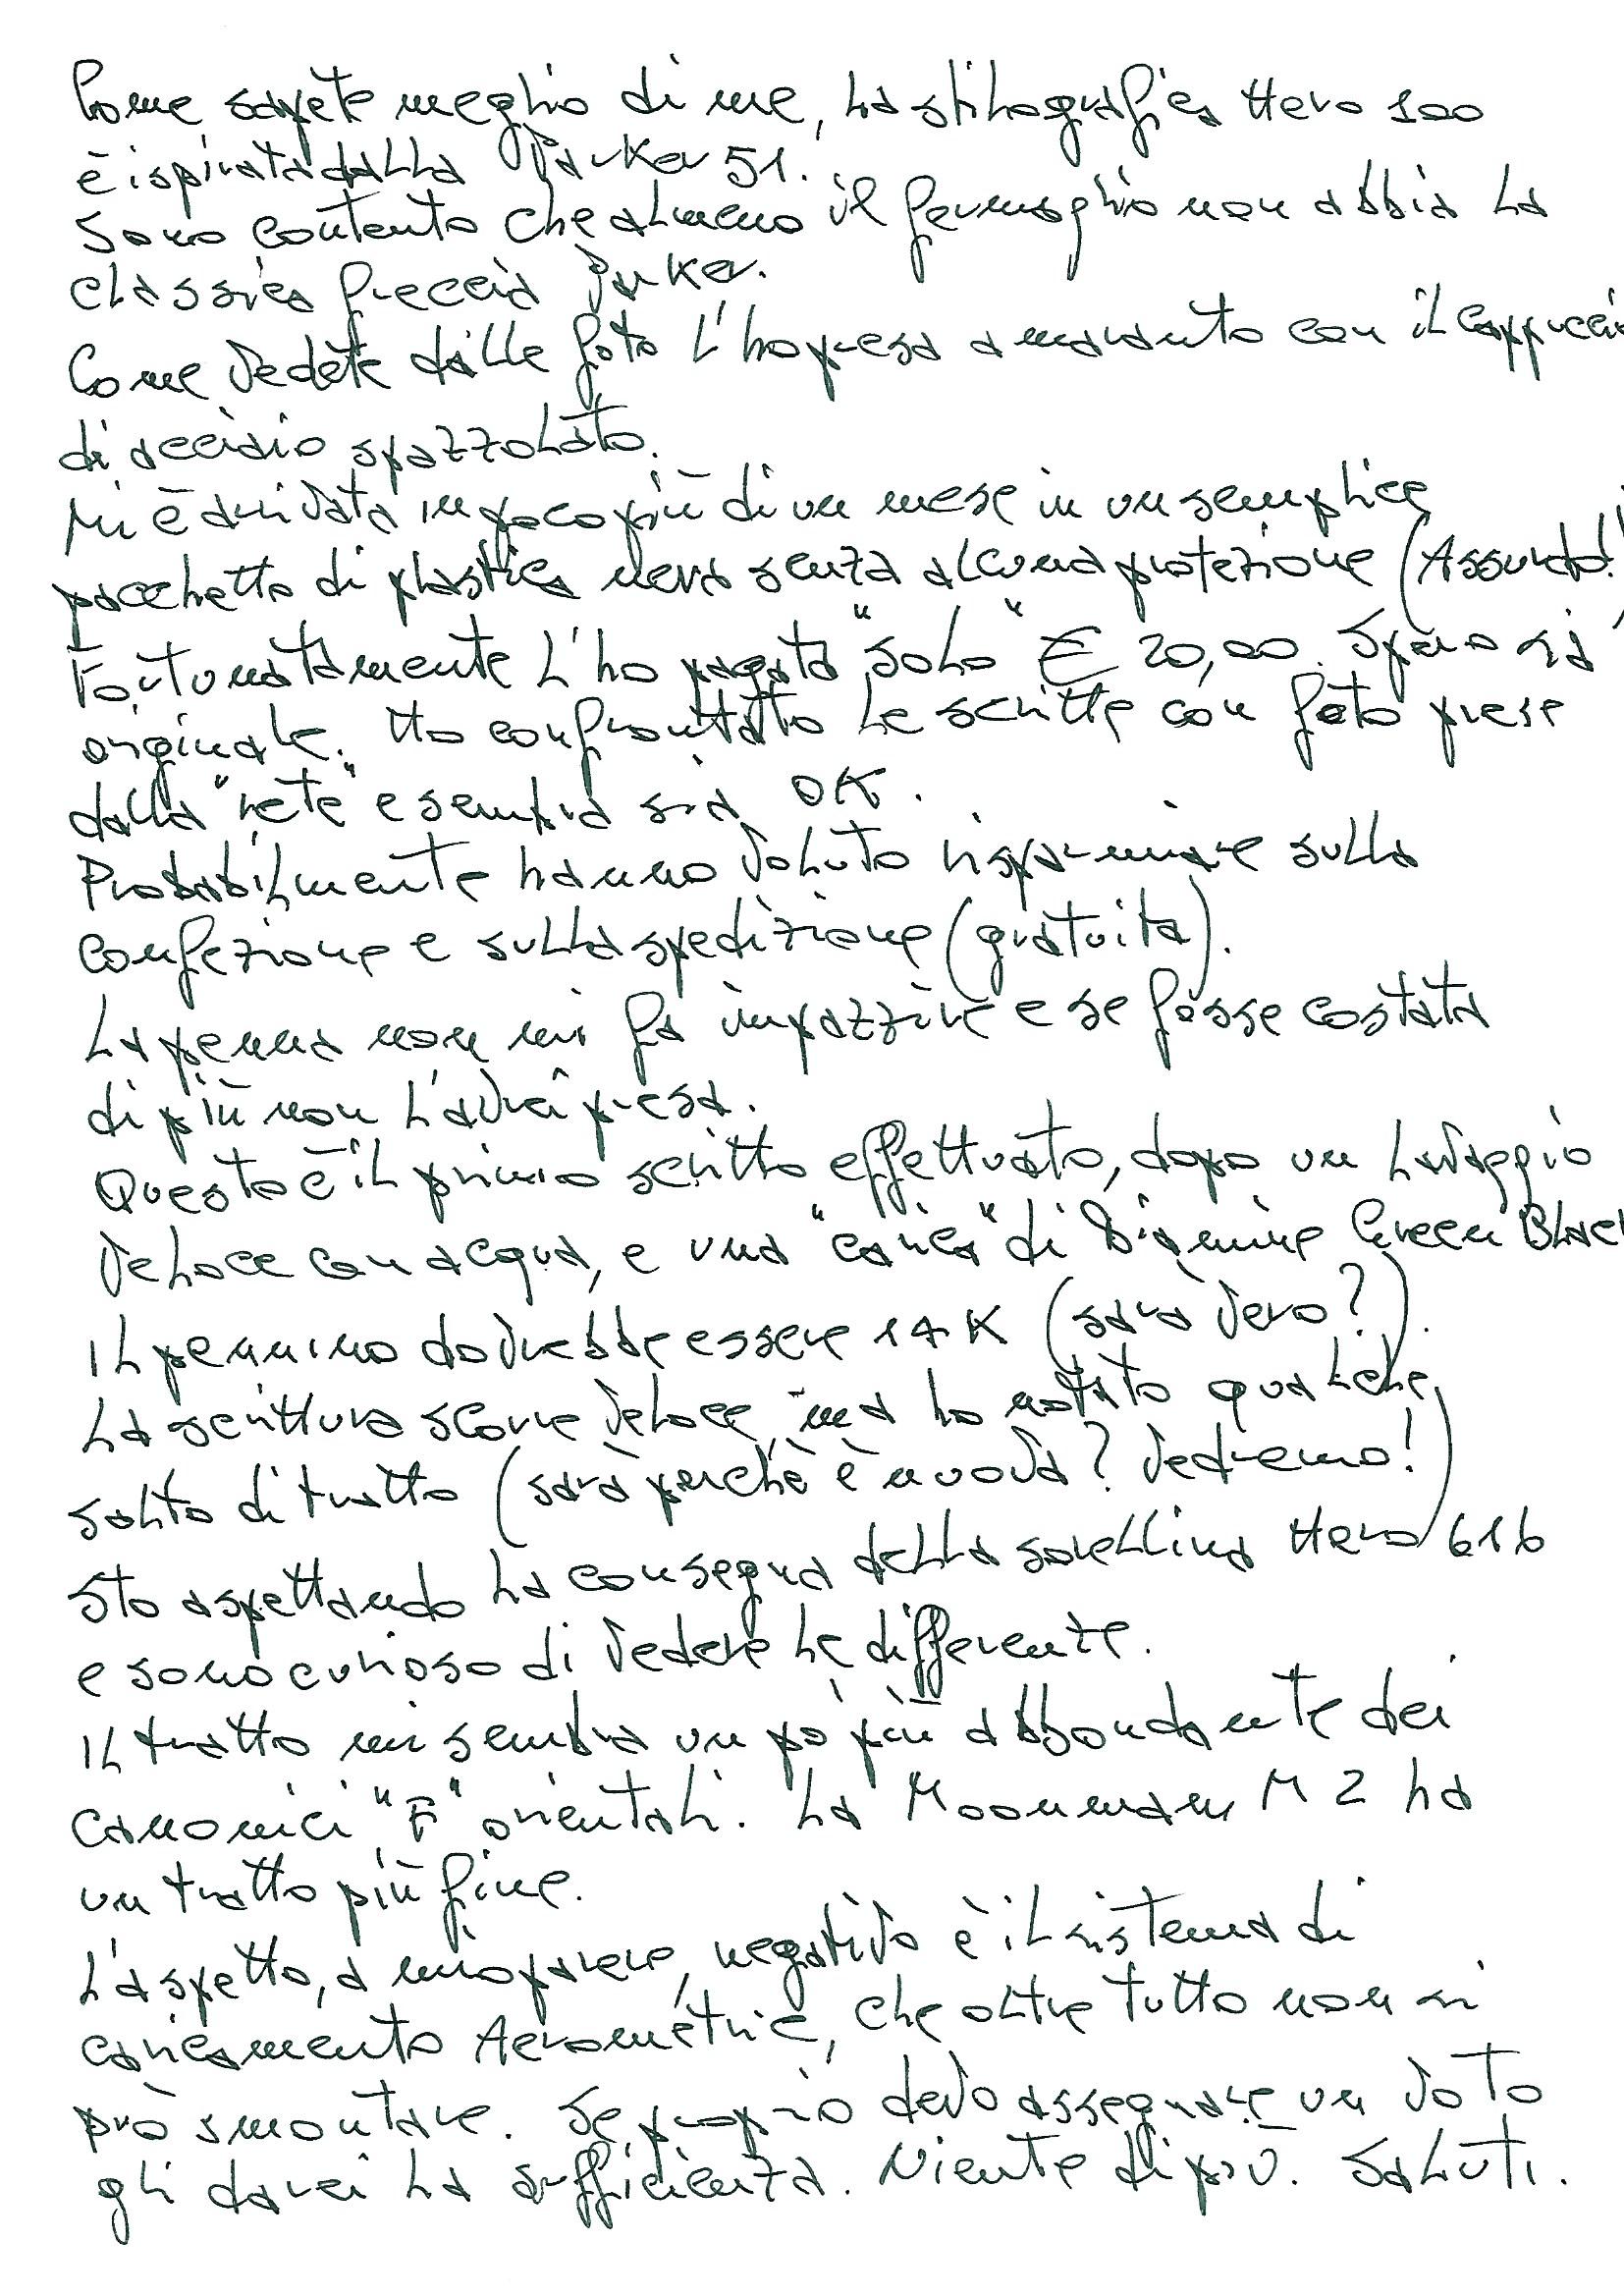 Come sapete meglio di me, la stilografica Hero 100
è ispirata dalla Parker 51.
Sono contento che almeno il fermaglio non abbia la
classica freccia Parker.
Come vedete dalle foto l'ho presa amaranto con il cappucci
di acciaio spazzolato.
Mi è arrivata in poco più di un mese in un semplice
pacchetto di plastica nera senza alcuna protezione (Assurdo!
Fortunatamente l'ho pagata "solo" € 20,00. Spero sia
originale. Ho confrontato le scritte con foto prese
dalla "rete" e sembra sia OK.
Probabilmente hanno voluto risparmiare sulla
confezione e sulla spedizione (gratuita).
La penna non mi fa impazzire e se fosse costata
di più non l'avrei presa.
Questo è il primo scritto effettuato, dopo un lavaggio
veloce con acqua, e una "carica" di Diamine Green Black
Il pennino dovrebbe essere 14K (sarà vero?).
La scrittura scorre veloce, ma ho notato qualche
salto di tratto (sarà perchè è nuova? Vedremo!)
Sto aspettando la consegna della sorellina Hero 616
e sono curioso di vedere le differenze.
Il tratto mi sembra un pò più abbondante dei
canonici "F" orientali. La Moonman M2 ha
un tratto più fine.
L'aspetto, a mio parere, negativo è il sistema di
caricamento Aerometric, che oltre tutto non si
può smontare. Se proprio devo assegnare un voto
gli darei la sufficienza. Niente di più. Saluti.